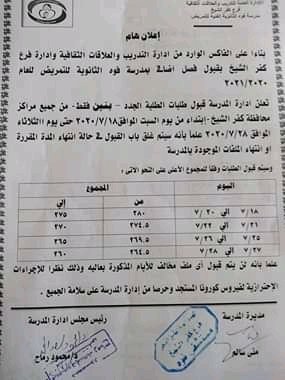 ادارة العامة للتدريب والعلاقات الثقافية
فرع كفر الشيخ
مدرسة فوه الثانوية الفنية للتمريض
إعلان هام
بناء على الفاكس الوارد من ادارة التدريب والعلاقات الثقافية وإدارة فرع
كفر الشيخ بقبول فصل اضافي بمدرسة فوه الثانوية للتمريض للعام
٢٠٢١/٢٠٢٠
تعلن إدارة المدرسة قبول طلبات الطلبة الجدد – بنين فقط – من جميع مراكز
محافظة كفر الشيخ – إبتداء من يوم السبت الموافق ٢٠٢٠/٧/١٨ حتى يوم الثلاثاء
الموافق ٢٠٢٠/٧/٢٨ علما بأنه سيتم غلق باب القبول في حالة انتهاء المدة المقررة
او انتهاء الملفات الموجودة بالمدرسة
وسيتم قبول الطلبات وفقا للمجموع الأعلى على النحو الاتي :
اليوم المجموع
من إلي
٧/١٨ إلي ٧/٢٠ ٢٨٠ ٢٧٥
٧/٢١ الي ٧/٢٢ ٢٧٤.٥ ٢٧٠
٧/٢٥ الي ٧/٢٦ ٢٦٩.٥ ٢٦٥
٧/٢٧ الي ٧/٢٨ ٢٦٤.٥ ٢٦٠
علما بانه لن يتم قبول أي ملف مخالف للأيام المذكورة بعاليه وذلك نظرا للإجراءات
الاحترازية لفيروس كورونا المستجد وحرصا من إدارة المدرسة على سلامة الجميع .
مديرة المدرسة رئيس مجلس ادارة المدرسة
منى سالم د/محمود رماح